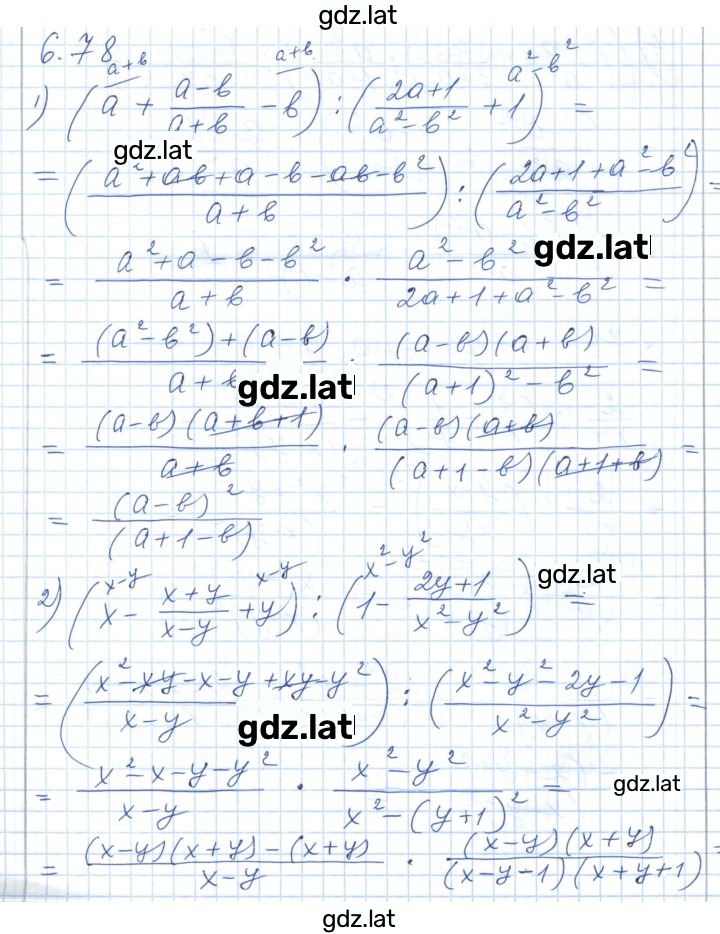 gdz.lat
6.78
1) (a^{a+b} + (a-b)/(a+b) - b^{a+b}) : ((2a+1)/(a²-b²) + 1^{a²-b²}) =
gdz.lat
= ((a²+ab+a-b-ab-b²)/(a+b)) : ((2a+1+a²-b²)/(a²-b²)) =
= (a²+a-b-b²)/(a+b) · (a²-b²)/(2a+1+a²-b²) =
gdz.lat
= ((a²-b²)+(a-b))/(a+b) · ((a-b)(a+b))/((a+1)²-b²) =
gdz.lat
= ((a-b)(a+b+1))/(a+b) · ((a-b)(a+b))/((a+1-b)(a+1+b)) =
= (a-b)²/(a+1-b)
2) (x^{x-y} - (x+y)/(x-y) + y^{x-y}) : (1^{x²-y²} - (2y+1)/(x²-y²)) =
gdz.lat
= ((x²-xy-x-y+xy-y²)/(x-y)) : ((x²-y²-2y-1)/(x²-y²)) =
gdz.lat
= (x²-x-y-y²)/(x-y) · (x²-y²)/(x²-(y+1)²) =
gdz.lat
= ((x-y)(x+y)-(x+y))/(x-y) · ((x-y)(x+y))/((x-y-1)(x+y+1)) =
gdz.lat